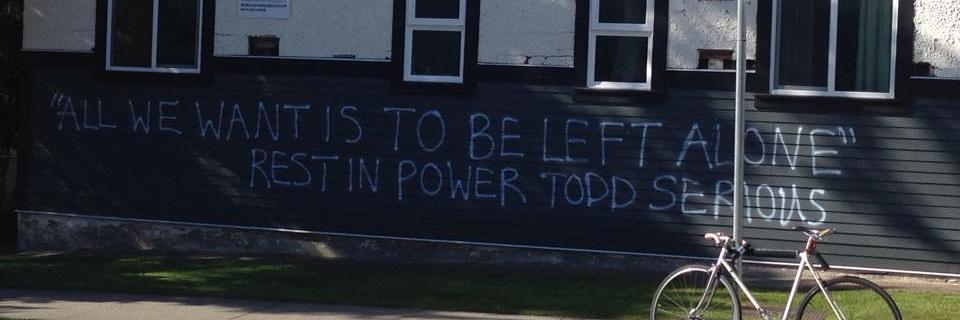 "ALL WE WANT IS TO BE LEFT ALONE"
REST IN POWER TODD SERIOUS